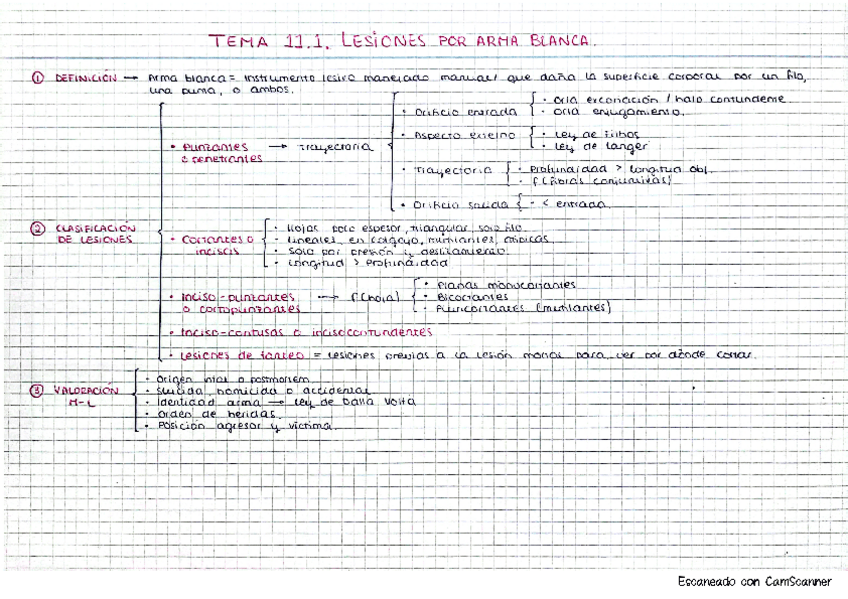 TEMA 11.1. LESIONES POR ARMA BLANCA.
① DEFINICIÓN → Arma blanca = instrumento lesivo manejado manual/ que daña la superficie corporal por un filo,
una punta, o ambos.
② CLASIFICACIÓN DE LESIONES
• Punzantes o penetrantes → Trayectoria
• Orificio entrada
• Orla excoriación / halo contundente
• Orla enjugamiento.
• Aspecto externo
• Ley de Filhos
• Ley de Langer
• Trayectoria
• Profundidad > longitud obj.
• f(fibras conjuntivas)
• Orificio salida
• < entrada
• Cortantes o incisas
• Hojas poco espesor, triangular, solo filo.
• Lineales, en colgajo, mutilantes, atípicas.
• Solo por presión y deslizamiento.
• Longitud > profundidad
• Inciso-punzantes o cortopunzantes → f(hoja)
• Planas monocortantes
• Bicortantes
• Pluricortantes (mutilantes)
• Inciso-contusas o incisocontundentes
• Lesiones de tanteo = lesiones previas a la lesión mortal para ver por dónde cortar.
③ VALORACIÓN M-L
• Origen vital o postmortem
• Suicida, homicida o accidental
• Identidad arma → Ley de Dalla Volta
• Orden de heridas.
• Posición agresor y víctima.
Escaneado con CamScanner